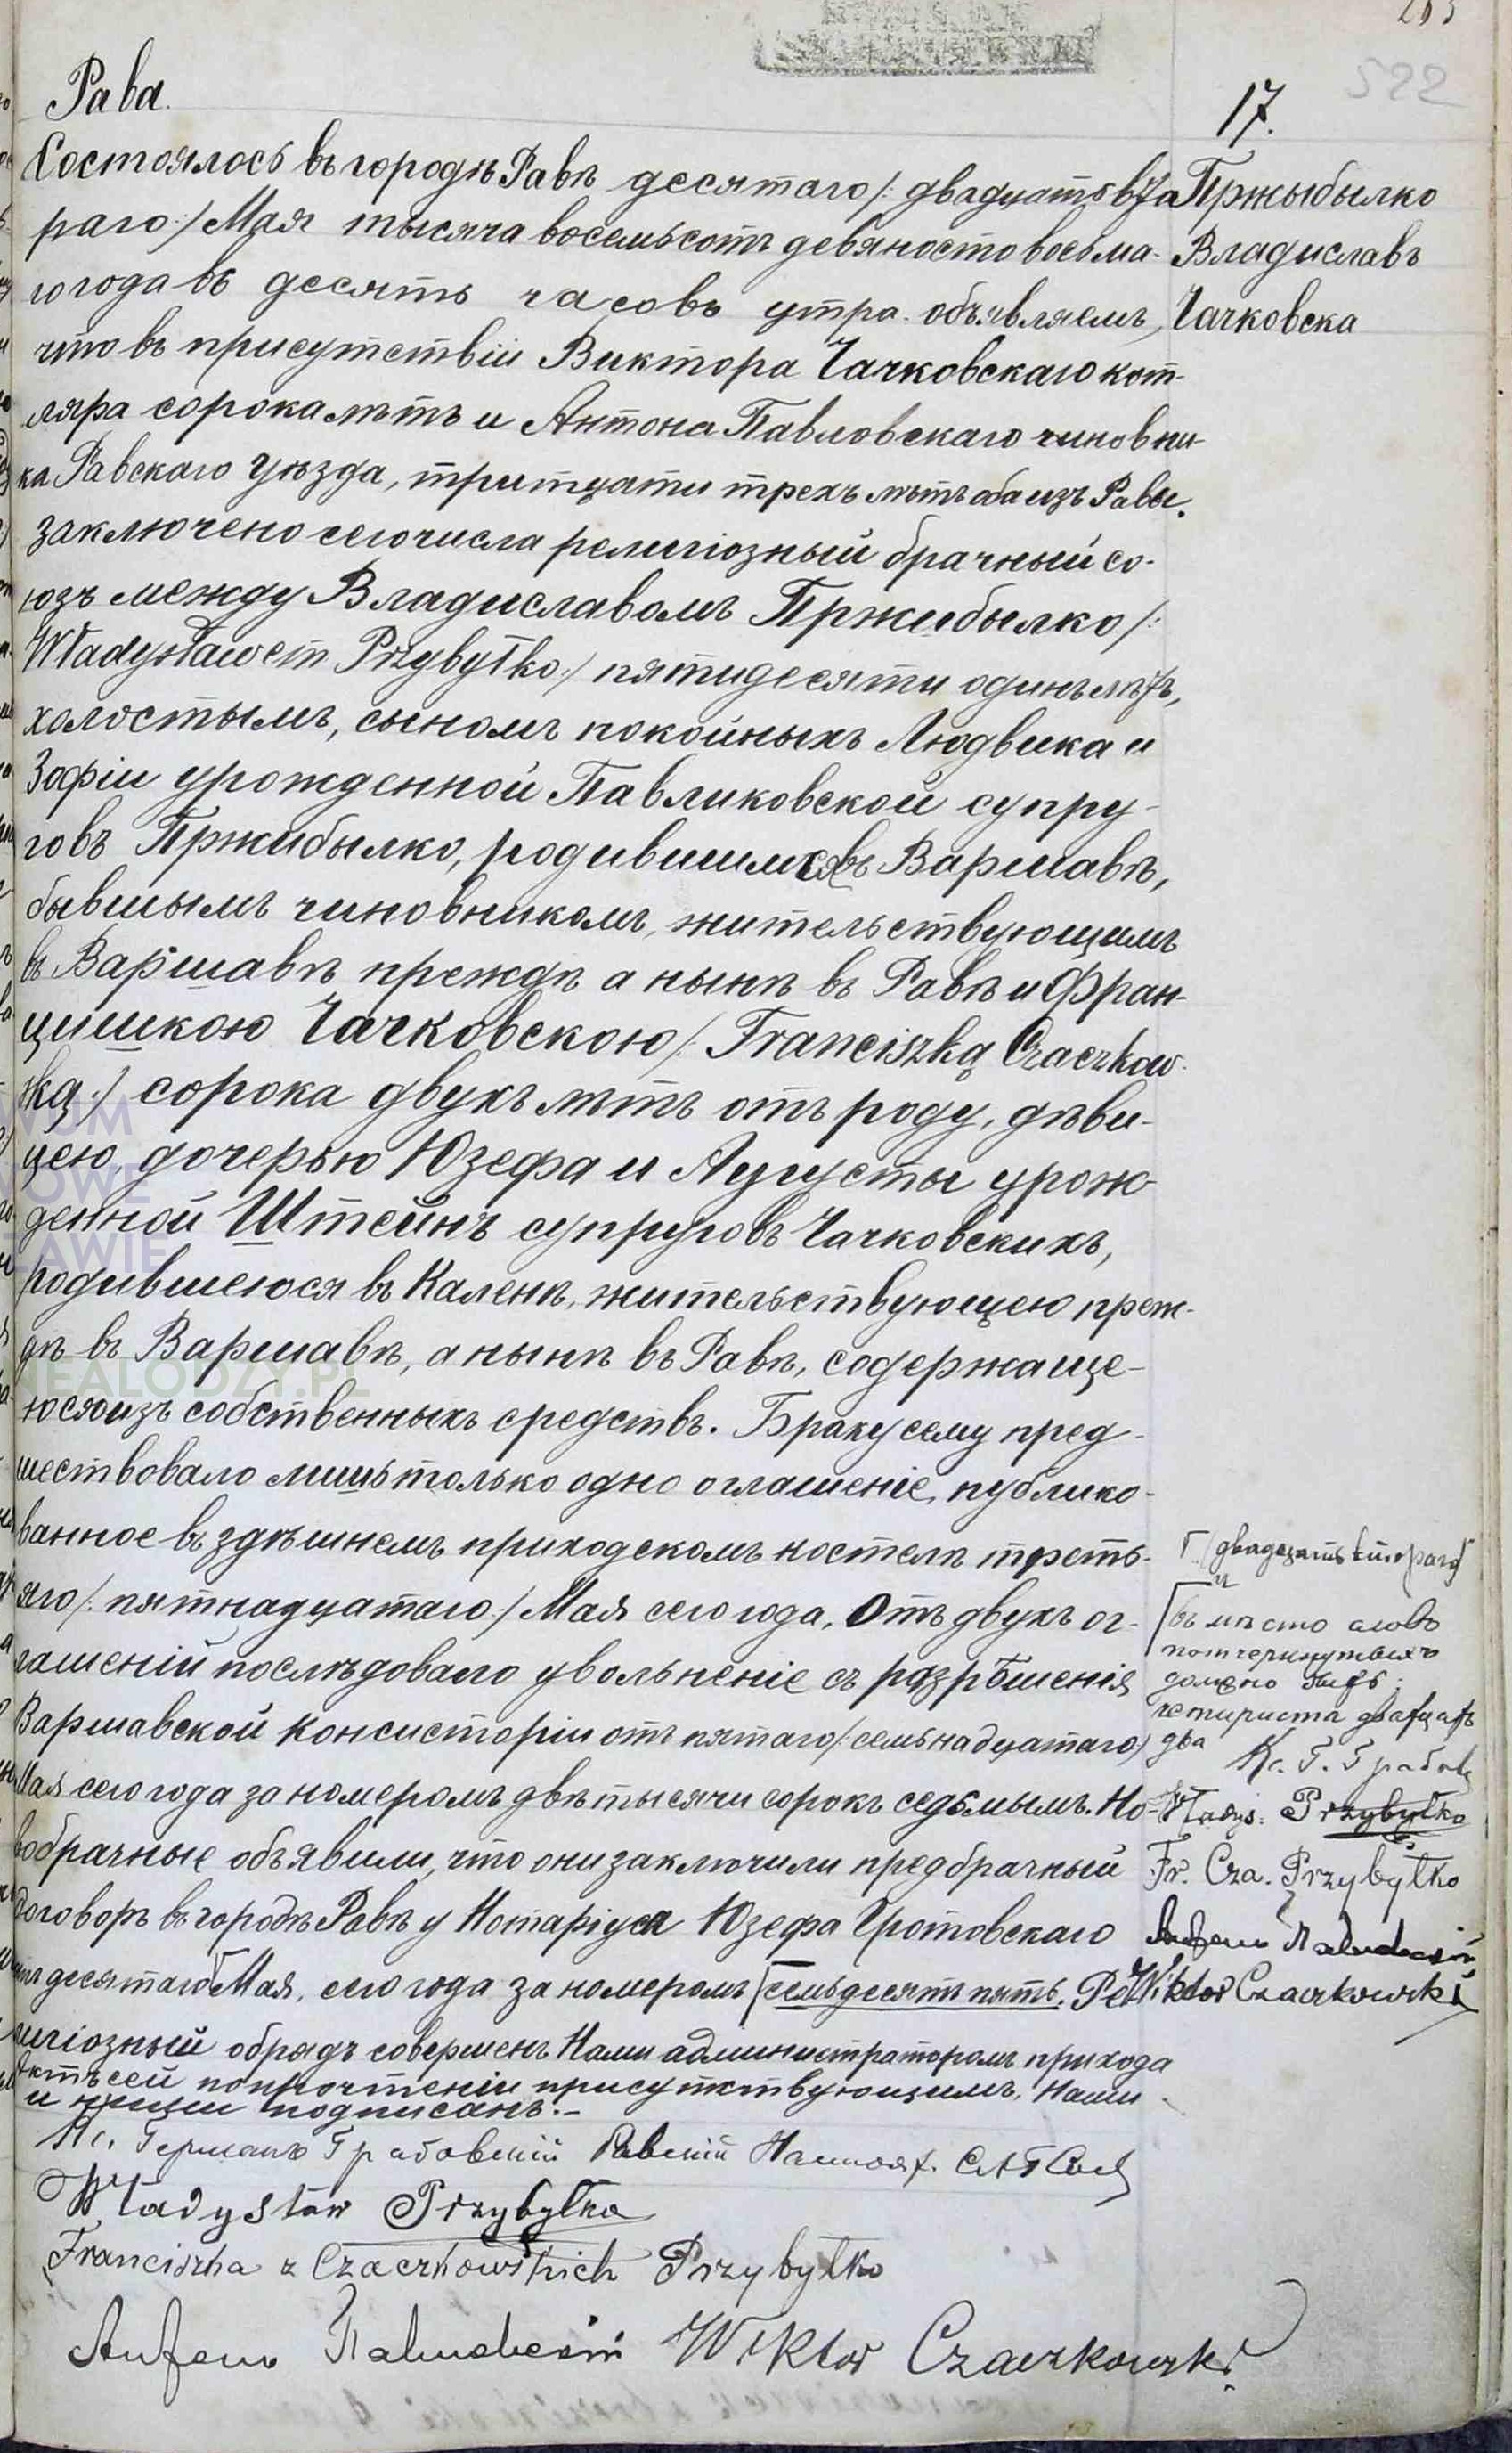 Рава.
17.
522
Состоялось въ городѣ Равѣ десятаго /: двадцать вто
раго :/ Мая тысяча восемьсотъ девяносто восьма-
го года въ десять часовъ утра. объявляемъ,
что въ присутствіи Виктора Чачковскаго кот-
ляра сорока лѣтъ и Антона Павловскаго чиновни-
ка Равскаго уѣзда, тритцати трехъ лѣтъ оба изъ Равы.
заключено сего числа религіозный брачный со-
юзъ между Владиславомъ Пржибылко /:
Władysławem Przybyłko :/ пятидесяти одинъ лѣтъ,
холостымъ, сыномъ покойныхъ Людвика и
Зофіи урожденной Павликовской супру-
говъ Пржибылко, родившимся въ Варшавѣ,
бывшымъ чиновникомъ, жительствующимъ
въ Варшавѣ преждѣ а нынѣ въ Равѣ и Фран-
цишкою Чачковскою /: Franciszką Czaczkow-
ską :/ сорока двухъ лѣтъ отъ роду, дѣви-
цею, дочерью Юзефа и Аугусты урож-
денной Штейнъ супруговъ Чачковскихъ,
родившеюся въ Каленѣ, жительствующею преж-
дѣ въ Варшавѣ, а нынѣ въ Равѣ, содержаще-
юся изъ собственныхъ средствъ. Браку сему пред-
шествовало лишь только одно оглашеніе, публико-
ванное въ здѣшнемъ приходскомъ костелѣ треть-
яго /: пятнадцатаго :/ Мая сего года, Отъ двухъ ог-
лашеній послѣдовало увольненіе съ разрѣшенія
Варшавской Консисторіи отъ пятаго /: семьнадцатаго :/
Мая сего года за номеромъ двѣ тысячи сорокъ седьмымъ. Но-
вобрачные объявили, что они заключили предбрачный
договоръ въ городѣ Равѣ у Нотаріуса Юзефа Гротовскаго
отъ десятаго Мая, сего года за номеромъ семьдесятъ пять. Ре
лигіозный обрядъ совершенъ Нами администраторомъ прихода
Актъ сей по прочтеніи присутствующимъ, Нами
и ними подписанъ.-
Кс. Германъ Грабовскій Равскій
Władysław Przybyłko
Franciszka z Czaczkowskich Przybyłko
Wiktor Czaczkowski
Пржыбылко
Владиславъ
Чачковска
Г /: двадцать втораго :/
въ мѣсто словъ
потчеркнутыхъ
должно быть:
четыриста двадцать
два Кс. Г. Грабов
Władys: Przybyłko
Fr. Cza. Przybyłko
Wiktor Czaczkowski